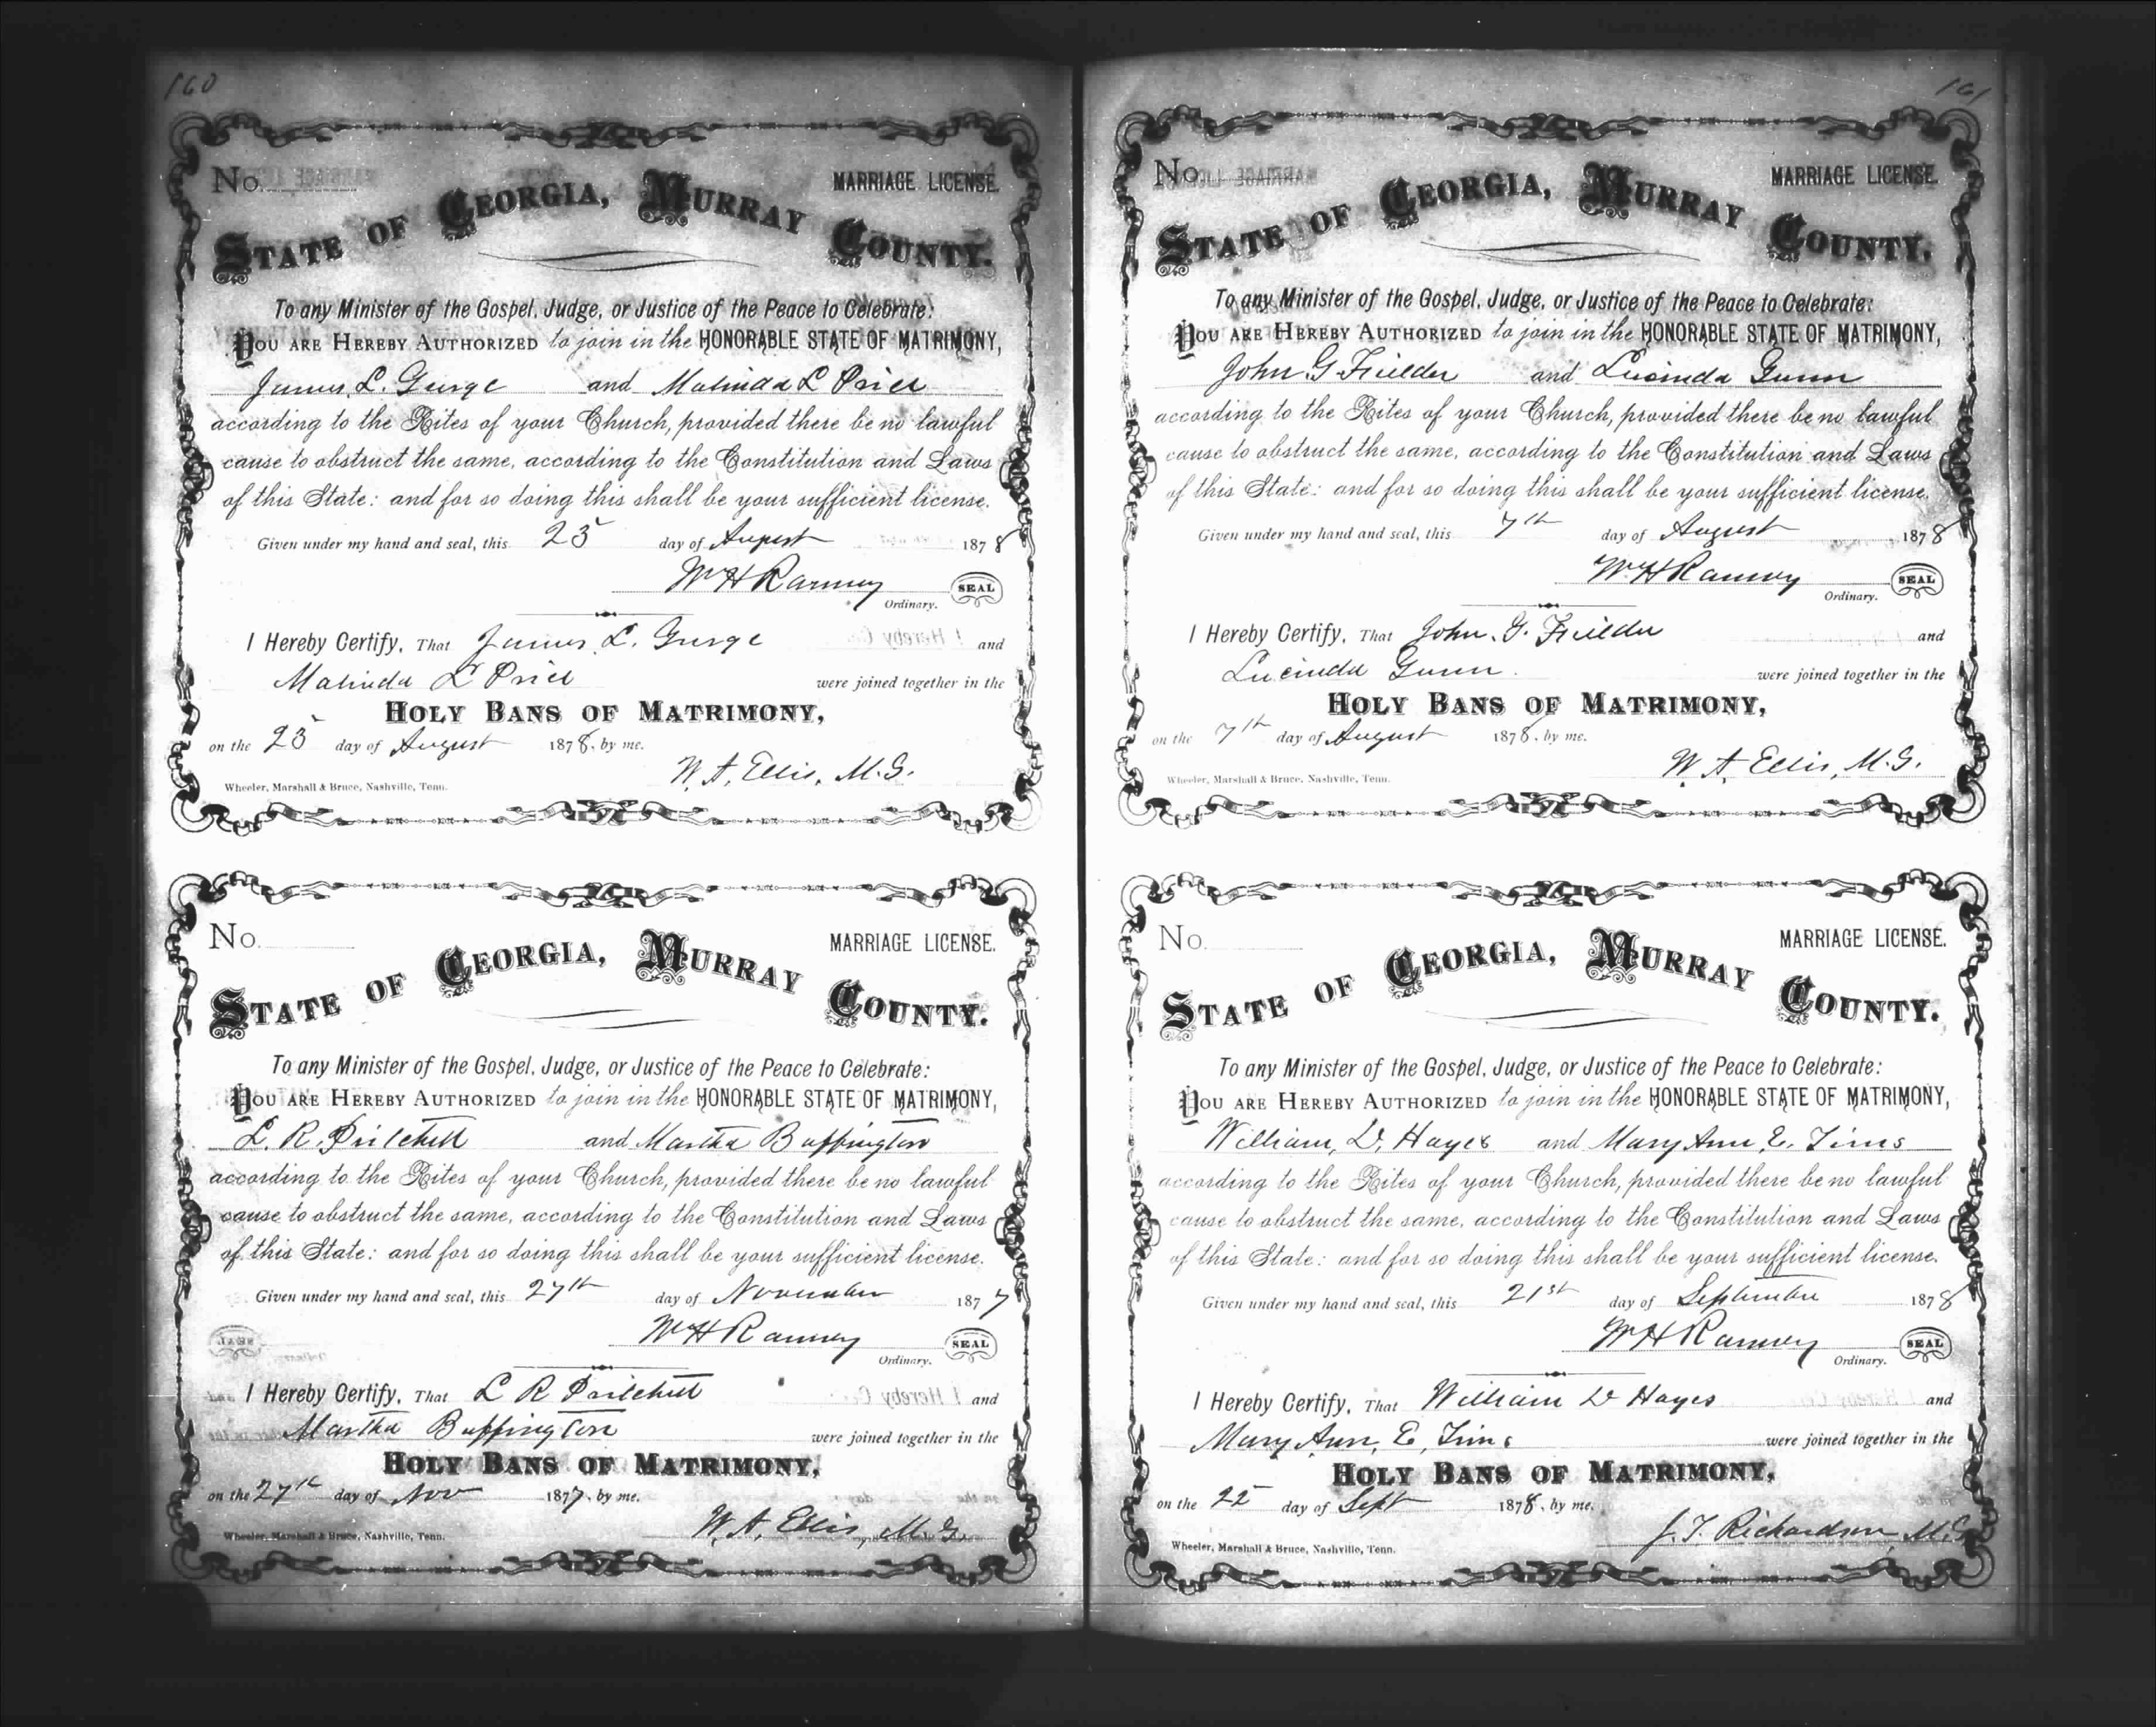 160
No. MARRIAGE LICENSE.
STATE OF GEORGIA, MURRAY COUNTY.
To any Minister of the Gospel, Judge, or Justice of the Peace to Celebrate:
YOU ARE HEREBY AUTHORIZED to join in the HONORABLE STATE OF MATRIMONY,
James L. and Malinda L Price
according to the Rites of your Church, provided there be no lawful
cause to obstruct the same, according to the Constitution and Laws
of this State: and for so doing this shall be your sufficient license.
Given under my hand and seal, this 25 day of August 1878
W H Ramsey SEAL
Ordinary.
I Hereby Certify, That James L. and
Malinda L Price were joined together in the
HOLY BANS OF MATRIMONY,
on the 25 day of August 1878, by me.
W. A. Ellis, M.G.
Wheeler, Marshall & Bruce, Nashville, Tenn.
No. MARRIAGE LICENSE.
STATE OF GEORGIA, MURRAY COUNTY.
To any Minister of the Gospel, Judge, or Justice of the Peace to Celebrate:
YOU ARE HEREBY AUTHORIZED to join in the HONORABLE STATE OF MATRIMONY,
L. R. Pritchett and Martha Buffington
according to the Rites of your Church, provided there be no lawful
cause to obstruct the same, according to the Constitution and Laws
of this State: and for so doing this shall be your sufficient license.
Given under my hand and seal, this 27th day of November 1877
W H Ramsey SEAL
Ordinary.
I Hereby Certify, That L R Pritchett and
Martha Buffington were joined together in the
HOLY BANS OF MATRIMONY,
on the 27th day of Nov 1877, by me.
W. A. Ellis, M.G.
Wheeler, Marshall & Bruce, Nashville, Tenn.
161
No. MARRIAGE LICENSE.
STATE OF GEORGIA, MURRAY COUNTY.
To any Minister of the Gospel, Judge, or Justice of the Peace to Celebrate:
YOU ARE HEREBY AUTHORIZED to join in the HONORABLE STATE OF MATRIMONY,
John G. Frielder and Lucinda Gunn
according to the Rites of your Church, provided there be no lawful
cause to obstruct the same, according to the Constitution and Laws
of this State: and for so doing this shall be your sufficient license.
Given under my hand and seal, this 7th day of August 1878
W. H Ramsey SEAL
Ordinary.
I Hereby Certify, That John. G. Frielder and
Lucinda Gunn. were joined together in the
HOLY BANS OF MATRIMONY,
on the 7th day of August 1878, by me.
W. A. Ellis, M.G.
Wheeler, Marshall & Bruce, Nashville, Tenn.
No. MARRIAGE LICENSE.
STATE OF GEORGIA, MURRAY COUNTY.
To any Minister of the Gospel, Judge, or Justice of the Peace to Celebrate:
YOU ARE HEREBY AUTHORIZED to join in the HONORABLE STATE OF MATRIMONY,
William, D. Hayes and Mary Ann, E. Tims
according to the Rites of your Church, provided there be no lawful
cause to obstruct the same, according to the Constitution and Laws
of this State: and for so doing this shall be your sufficient license.
Given under my hand and seal, this 21st day of September 1878
W H Ramsey SEAL
Ordinary.
I Hereby Certify, That William D Hayes and
Mary Ann, E, Tims were joined together in the
HOLY BANS OF MATRIMONY,
on the 22 day of Sept 1878, by me.
J. T. Richardson, M.G.
Wheeler, Marshall & Bruce, Nashville, Tenn.